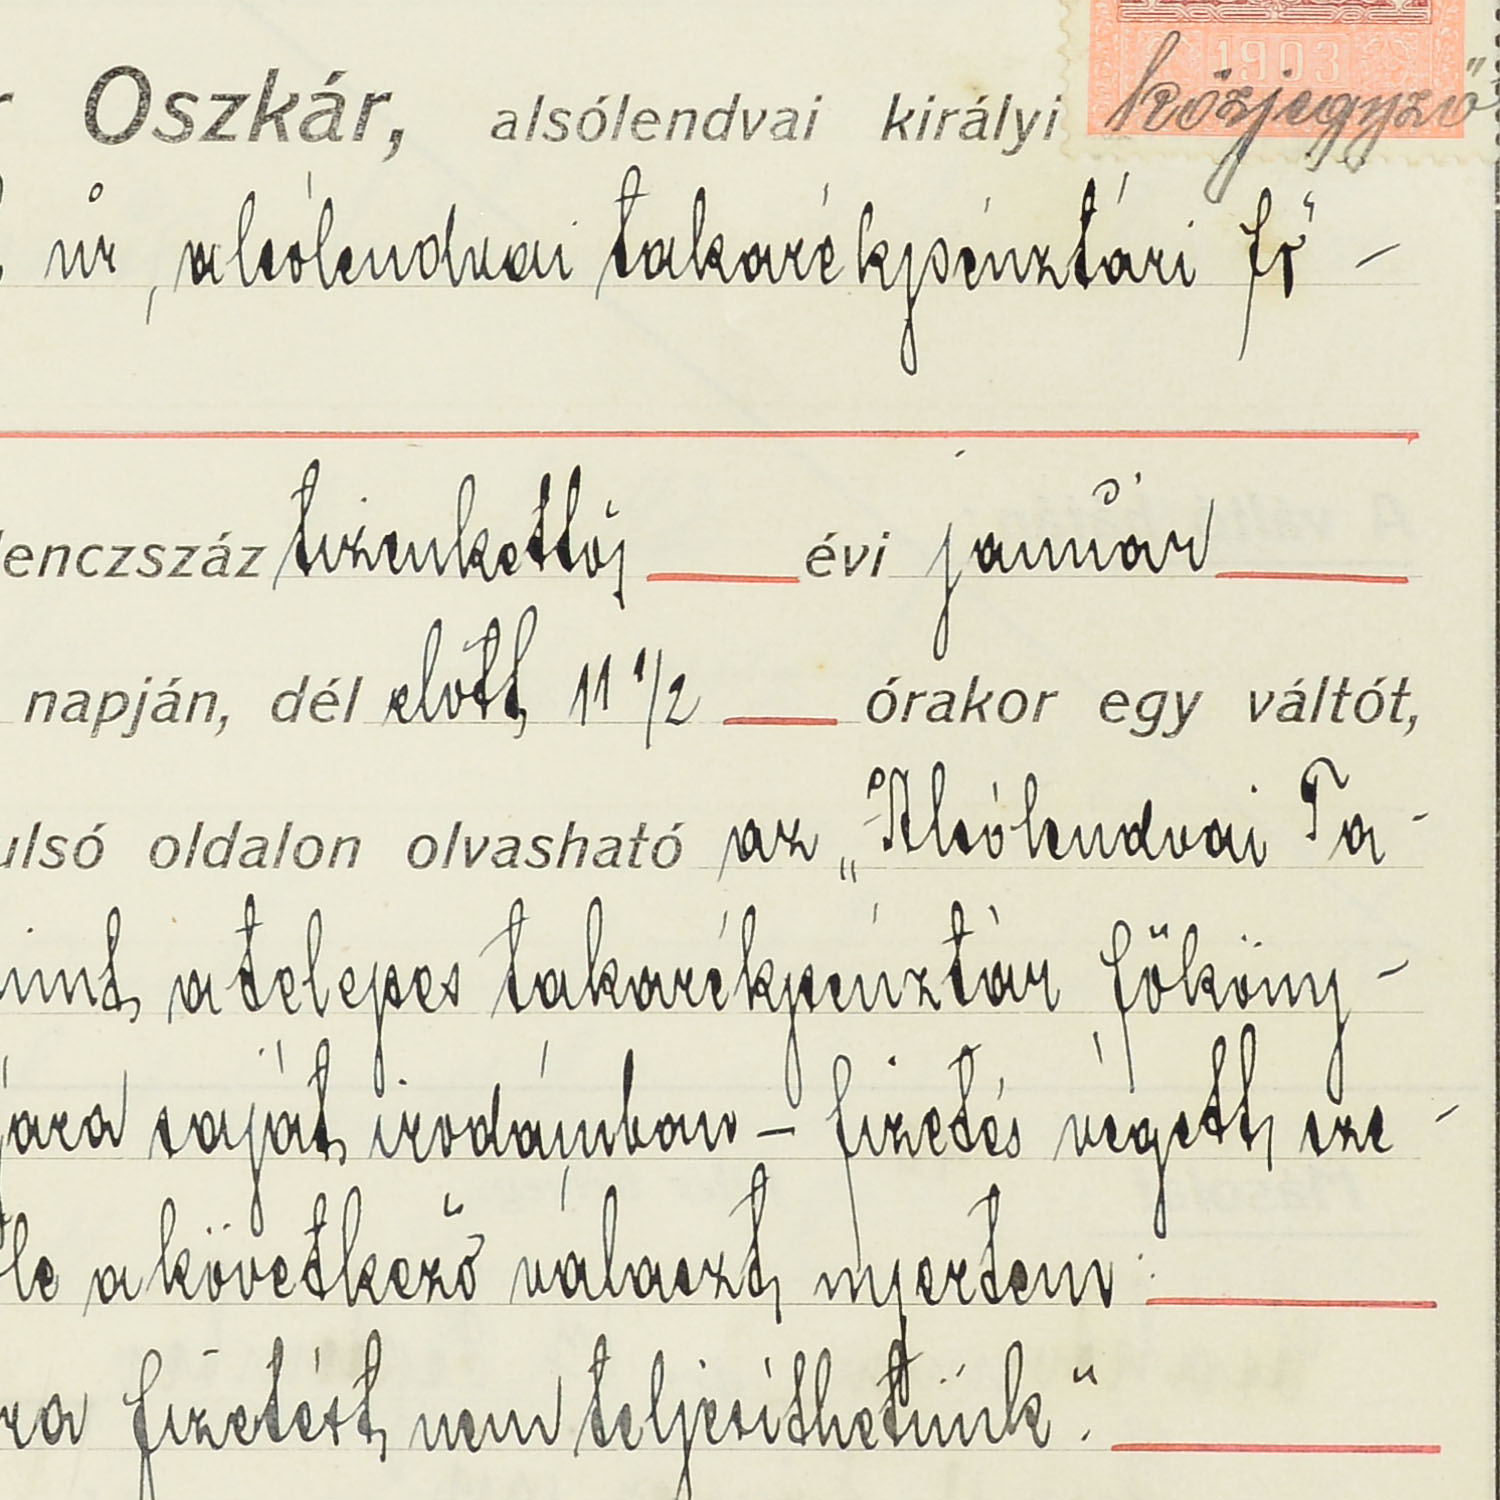 1903
Oszkár, alsólendvai királyi közjegyző
úr, alsólendvai takarékpénztári fő-
tizenkettőj évi január
napján, dél előtt 11 1/2 órakor egy váltót,
oldalon olvasható az „Alsólendvai Ta-
a telepes takarékpénztár főköny-
saját irodámban – fizetés végett, eze-
a következő választ nyertem:
fizetést nem teljesíthetünk".